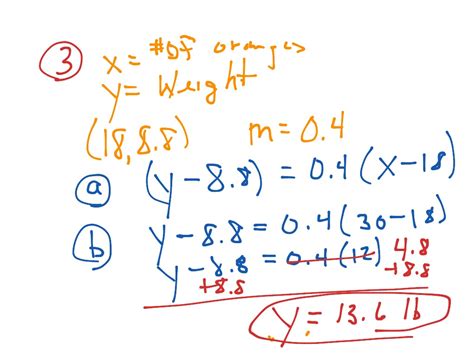 3 x = # of oranges
y = Weight
(18, 8.8) m = 0.4
a (y - 8.8) = 0.4 (x - 18)
b y - 8.8 = 0.4 (30 - 18)
y - 8.8 = 0.4 (12) 4.8
+8.8 +8.8
y = 13.6 lb